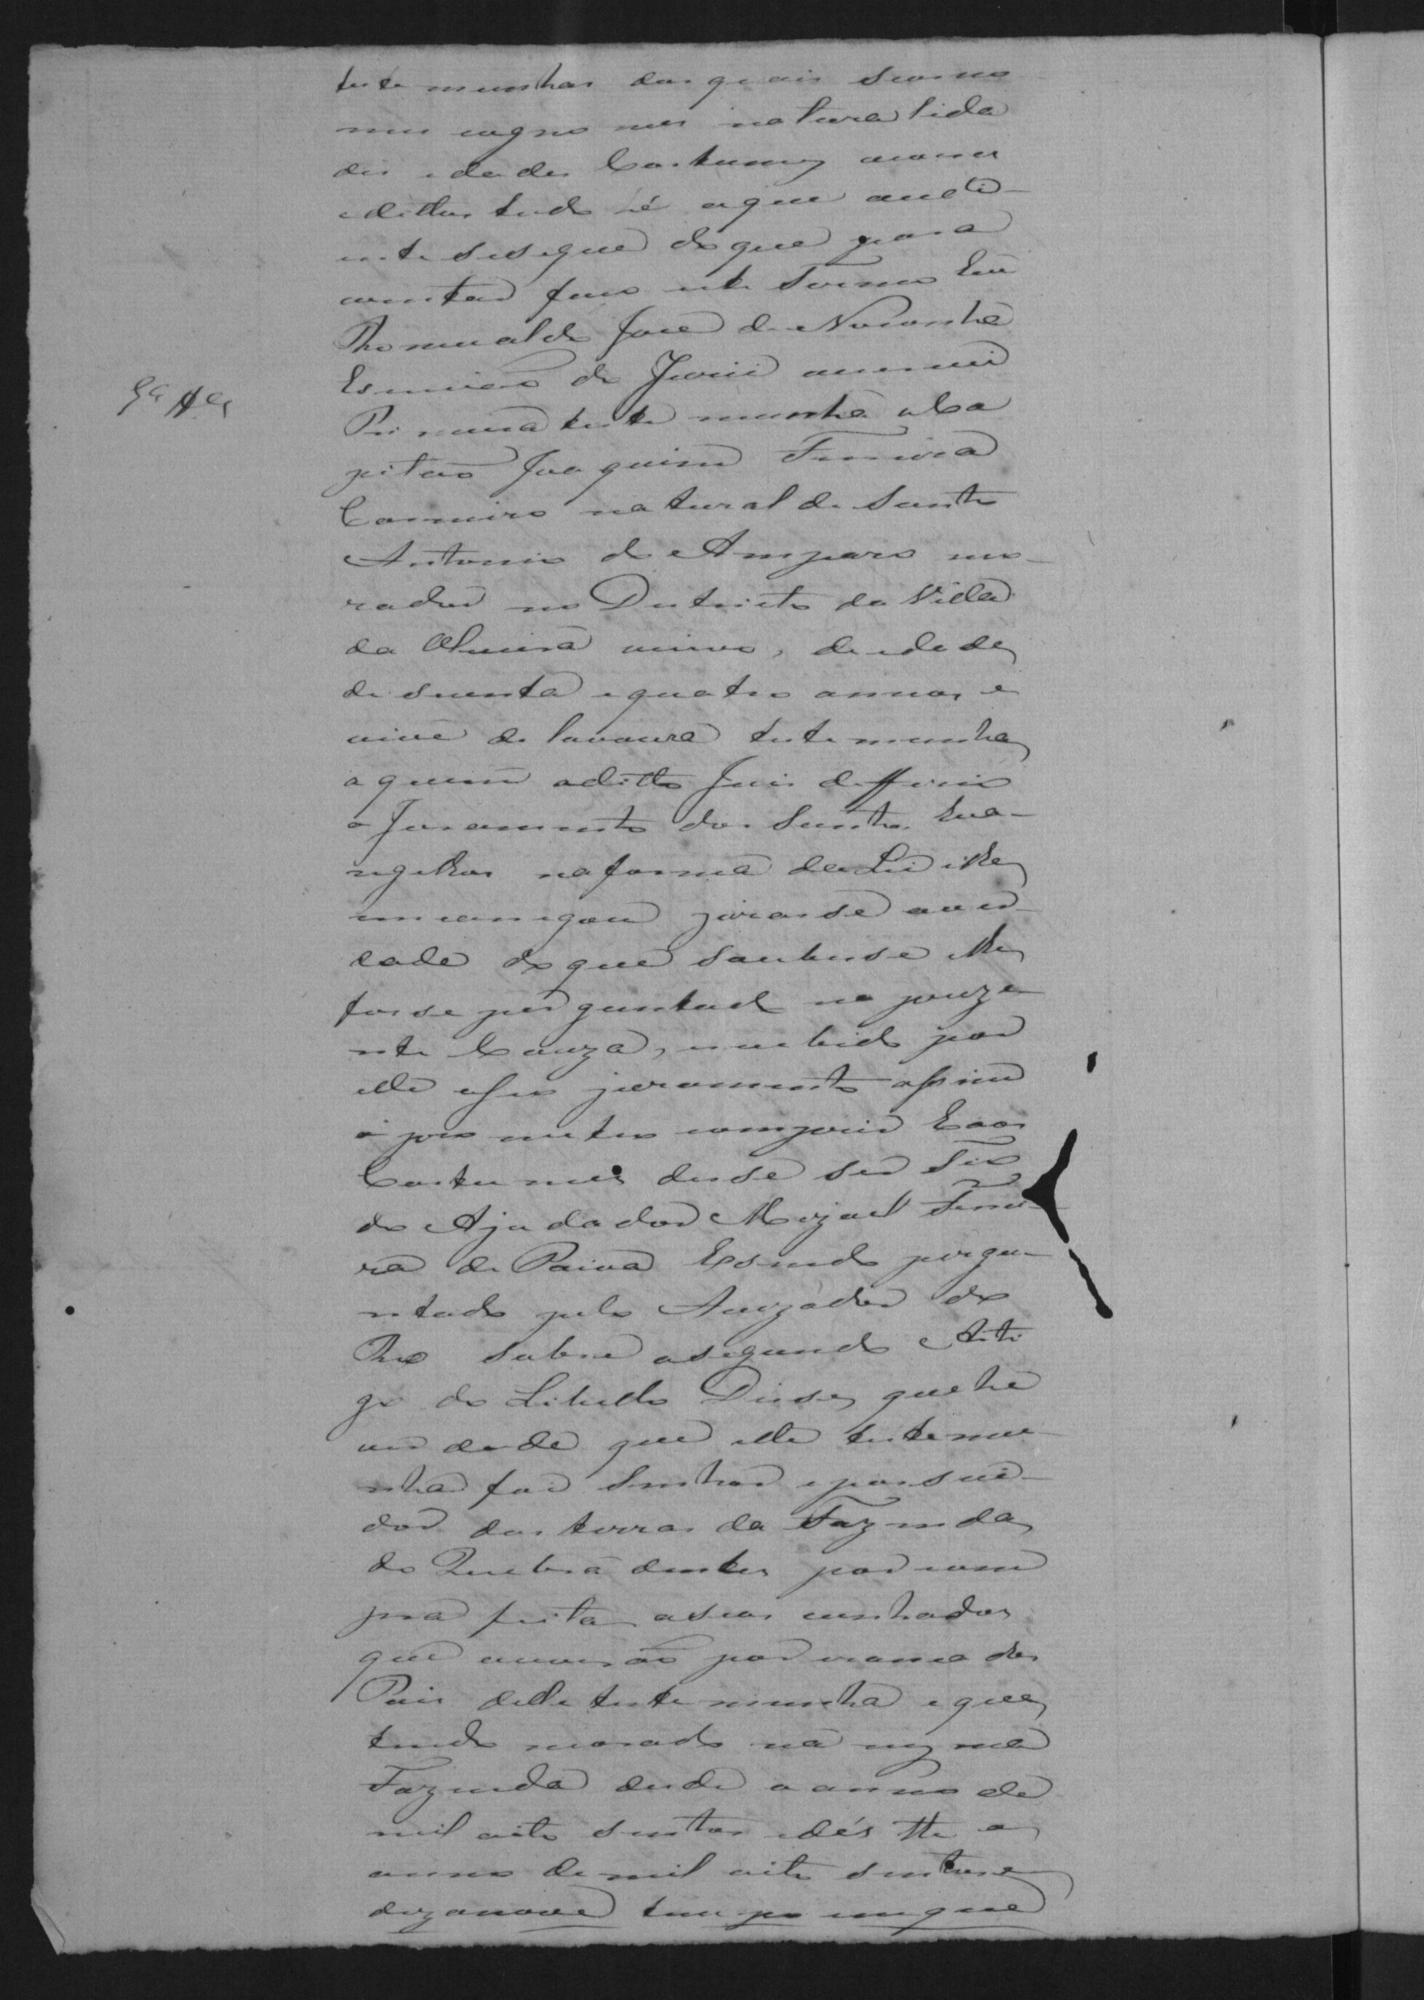 testemunhas das quais seus no
mes cognomes naturalida
des idades Costumes
e dittos tudo hé oque audi
ente sesegue do que para
constar faço este termo Eu
Rhomualdo José de Noronha
Escrivão de Juiz escrevi
Primeira testemunha o Ca
pitão Joaquim Ferreira
Carneiro natural de Santo
Antonio do Amparo mo-
rador no Destricto da Villa
da Oliveira viuvo, de idade
de secenta equatro annos e
vive de lavoura testemunha
aquem oditto Juis defferio
o Juramento dos Santos Eva-
ngelhos naforma da Lei elhe
encarregou jurasse aver
dade do que soubesse elhe
fosse perguntado na preze
nte Cauza, erecebido por
elle essee juramento assim
o prometeo comprir Eaos
Costumes disse ser Tio
do Ajudador Mizael Ferrei
ra de Paiva Esendo pergu-
ntado pelo Avizador do
Reo sobre osegundo Arti
go do Libello Disse, que hé
verdade que elle testemu-
nha foi Senhor epossui-
dor das terras da Fazenda
do Quebra dentes por com
pra feita aseos cunhados
que erança dos
Pais delle testemunha eque
tendo morado na mezma
Fazenda desde o anno de
mil oito sentos edés the o
anno de mil oito sentos e
dezanove tempo emque